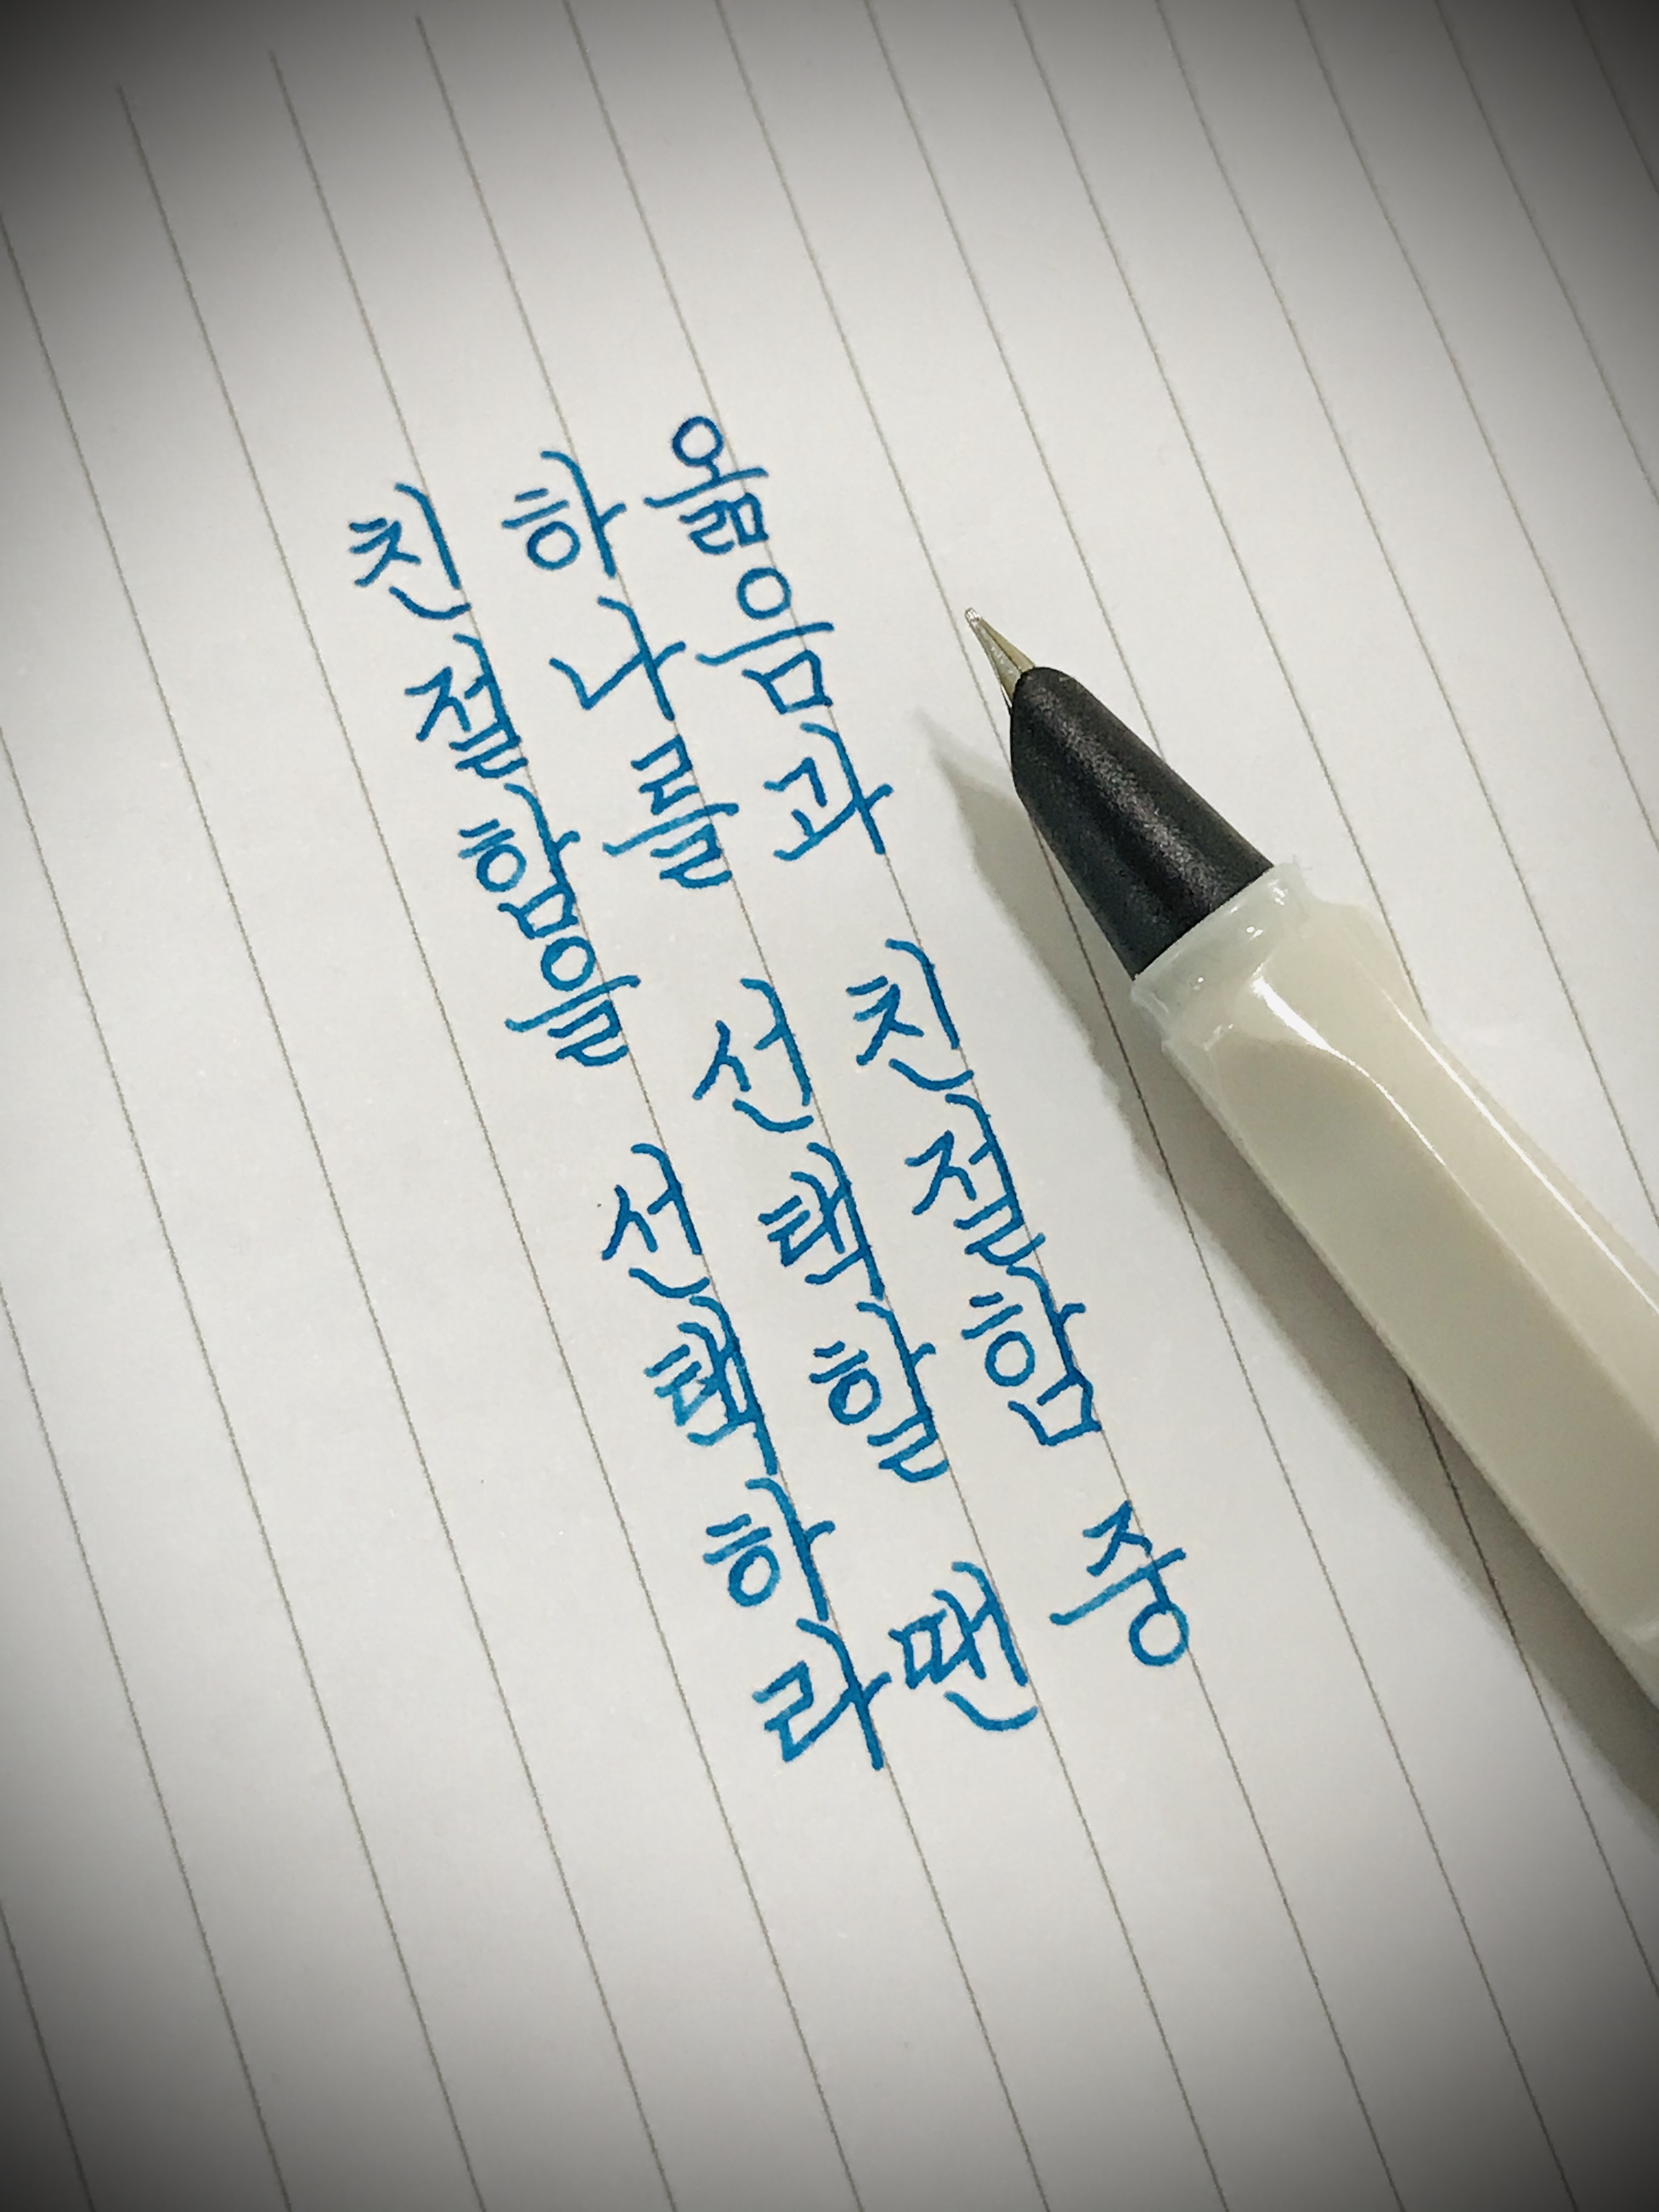 옮음과 친절함 중
하나를 선택할 땐
친절함을 선택하라